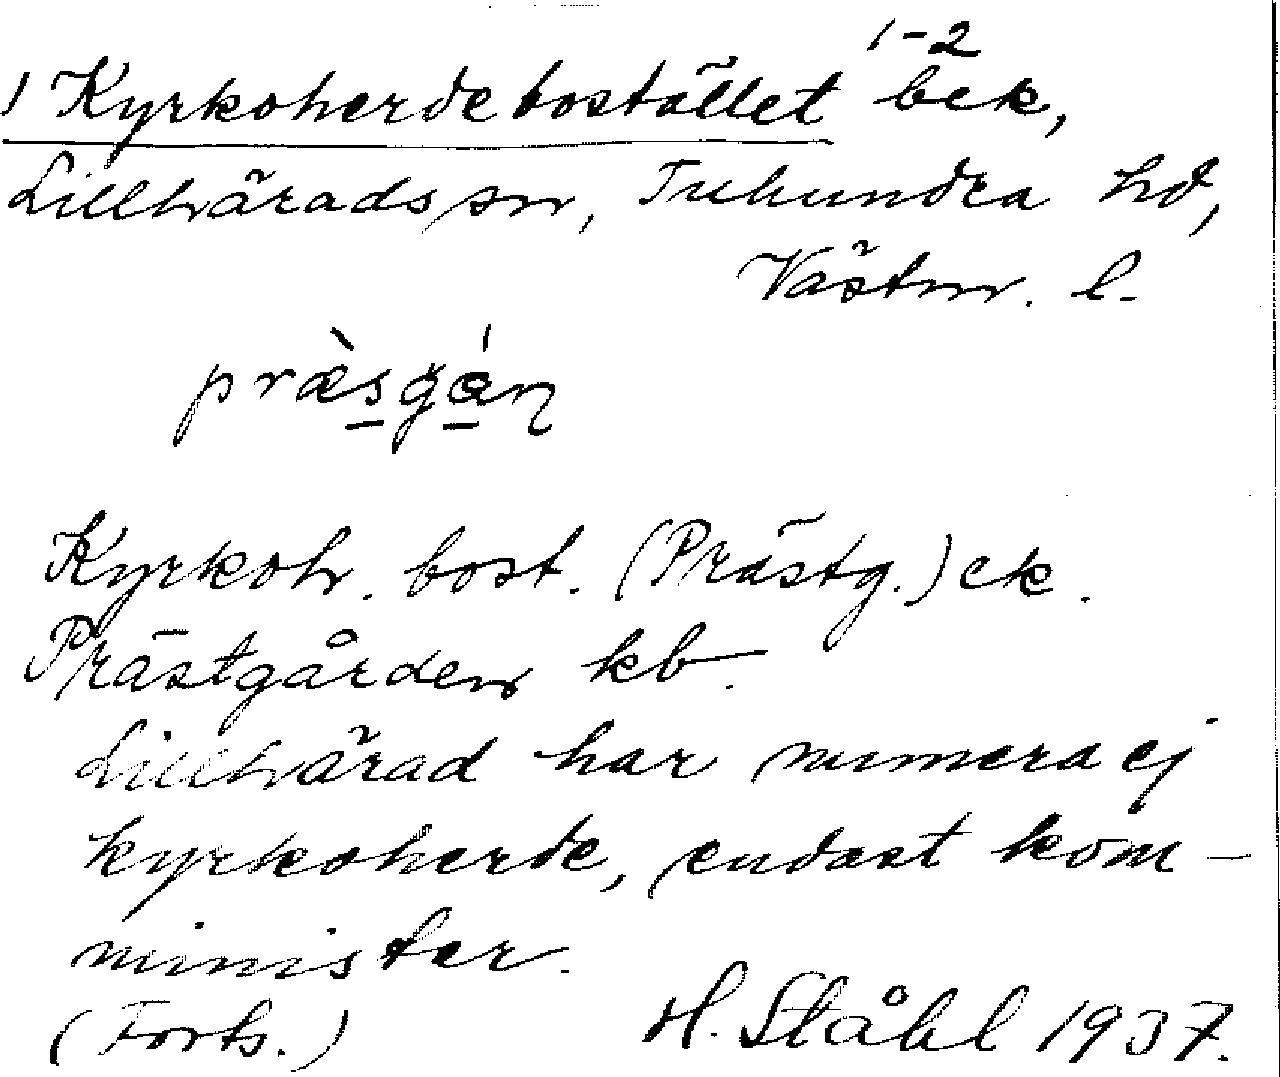 1-2
1 Kyrkoherdebostället bek,
Lillhärads sn, Tuhundra hd,
Västm. l.
Kyrkoh. bost. (Prästg.) ek.
Prästgården kb.
Lillhärad har numera ej
kyrkoherde, endast kom-
minister.
(Forts.) H. Ståhl 1937.